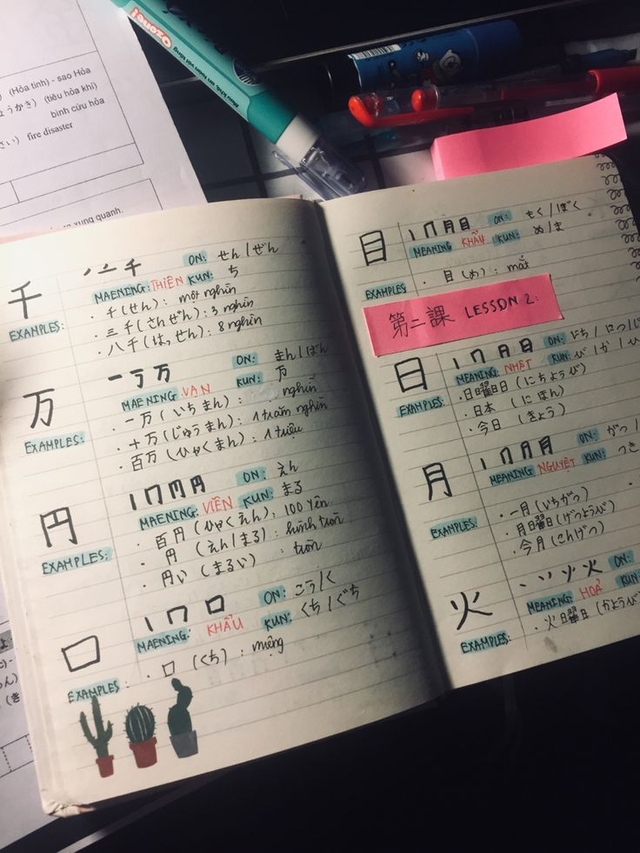 (Hỏa tinh) - sao Hỏa
ょうかき) (tiêu hỏa khí)
bình cứu hỏa
さい) fire disaster
xung quanh.
千
ON: せん/ぜん
MAENING: THIÊN KUN: ち
EXAMPLES:
・千(せん): một nghìn
・三千(さんぜん): 3 nghìn
・八千(はっせん): 8 nghìn
万
一 万 万
ON: まん/ばん
MAENING: VẠN KUN: 万
EXAMPLES:
・一万(いちまん): nghìn
・十万(じゅうまん): 1 trăm nghìn
・百万(ひゃくまん): 1 triệu
円
円 円
ON: えん
MAENING: VIÊN KUN: まる
EXAMPLES:
・百円(ひゃくえん): 100 Yên
・円 (えん/まる): hình tròn
・円い (まるい) : tròn
口
口
ON: こう/く
MAENING: KHẨU KUN: くち/ぐち
EXAMPLES:
・口 (くち): miệng
目
目
ON: もく/ぼく
MEANING KHẨU KUN: め/ま
EXAMPLES
・目(め): mắt
第二課 LESSON 2:
日
日
ON: にち/
MEANING NHẬT KUN: ひ/か/
EXAMPLES:
・日曜日(にちようび)
・日本 (にほん)
・今日 (きょう)
月
月
ON: がつ/
MEANING NGUYỆT KUN: つき
EXAMPLES:
・一月(いちがつ)
・月曜日(げつようび)
・今月(こんげつ)
火
火
ON:
MEANING: HOẢ KUN:
EXAMPLES:
・火曜日(かようび